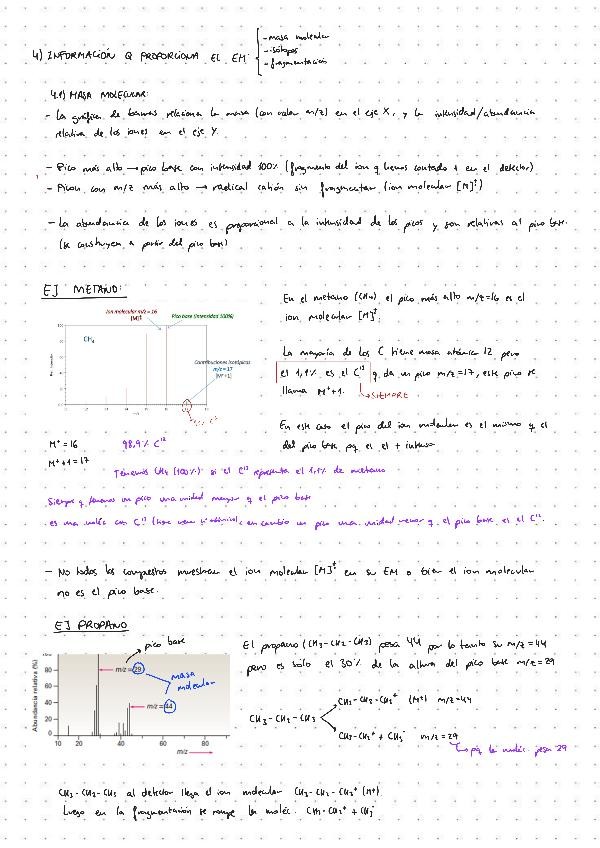 4) INFORMACIÓN Q PROPORCIONA EL EM:
- masa molecular
- isótopos
- fragmentación
4.1) MASA MOLECULAR:
- La gráfica de barras relaciona la masa (con valor m/z) en el eje X, y la intensidad/abundancia
relativa de los iones en el eje Y.
- Pico más alto → pico base con intensidad 100% (fragmento del ion q hemos contado + en el detector)
- Picos con m/z más alto → radical catión sin fragmentar (ion molecular [M]⁺)
- La abundancia de los iones es proporcional a la intensidad de los picos y son relativas al pico base.
(se construyen a partir del pico base)
EJ METANO:
Ion molecular m/z = 16
[M]⁺
Pico base (intensidad 100%)
CH₄
Contribuciones isotópicas
m/z = 17
[M⁺+1]
En el metano (CH₄) el pico más alto m/z=16 es el
ion molecular [M]⁺.
La mayoría de los C tiene masa atómica 12 pero
el 1,1% es el C¹³ q da un pico m/z=17, este pico se
llama M⁺+1.
→ SIEMPRE
En este caso el pico del ion molecular es el mismo q el
del pico base pq es el + intenso
M⁺ = 16
M⁺+1 = 17
98.9% C¹²
Tenemos CH₄ (100%) si el C¹³ representa el 1,1% de metano
Siempre q tenemos un pico una unidad mayor q el pico base
es una moléc con C¹³ en cambio un pico una unidad menor q el pico base es el C¹².
- No todos los compuestos muestran el ion molecular [M]⁺ en su EM o bien el ion molecular
no es el pico base.
EJ PROPANO
pico base
Abundancia relativa (%)
80
60
40
20
0
m/z = 29
m/z = 44
masa
molecular
10 20 40 60 80
m/z
El propano (CH₃-CH₂-CH₃) pesa 44 por lo tanto su m/z=44
pero es solo el 30% de la altura del pico base m/z=29
CH₃-CH₂-CH₃⁺ (M⁺) m/z=44
CH₃-CH₂-CH₃
CH₃-CH₂⁺ + CH₃˙ m/z=29
pq la moléc. pesa 29
CH₃-CH₂-CH₃ al detector llega el ion molecular CH₃-CH₂-CH₃⁺ (M⁺)
Luego en la fragmentación se rompe la moléc. CH₃-CH₂⁺ + CH₃˙